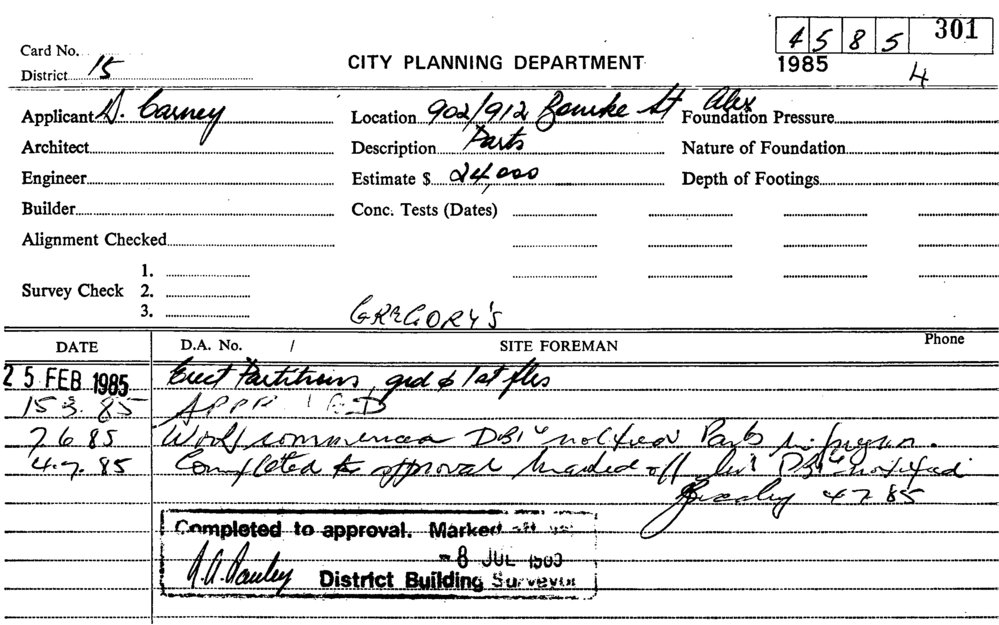 4 5 8 5 301
Card No.
CITY PLANNING DEPARTMENT
1985
District 15
4
Applicant D. Carney
Location 902/912 Bourke St Alex
Foundation Pressure
Architect
Description Parts
Nature of Foundation
Engineer
Estimate $ 24,000
Depth of Footings
Builder
Conc. Tests (Dates)
Alignment Checked
1.
Survey Check 2.
3.
GREGORY'S
DATE D.A. No. / SITE FOREMAN Phone
25 FEB 1985 Erect Partitions grd & 1st flrs
15 3. 85
7 6 85 Work commenced Parts
4. 7. 85 Completed to approval Marked off
4 7 85
Completed to approval. Marked
8 JUL
District Building Surveyor